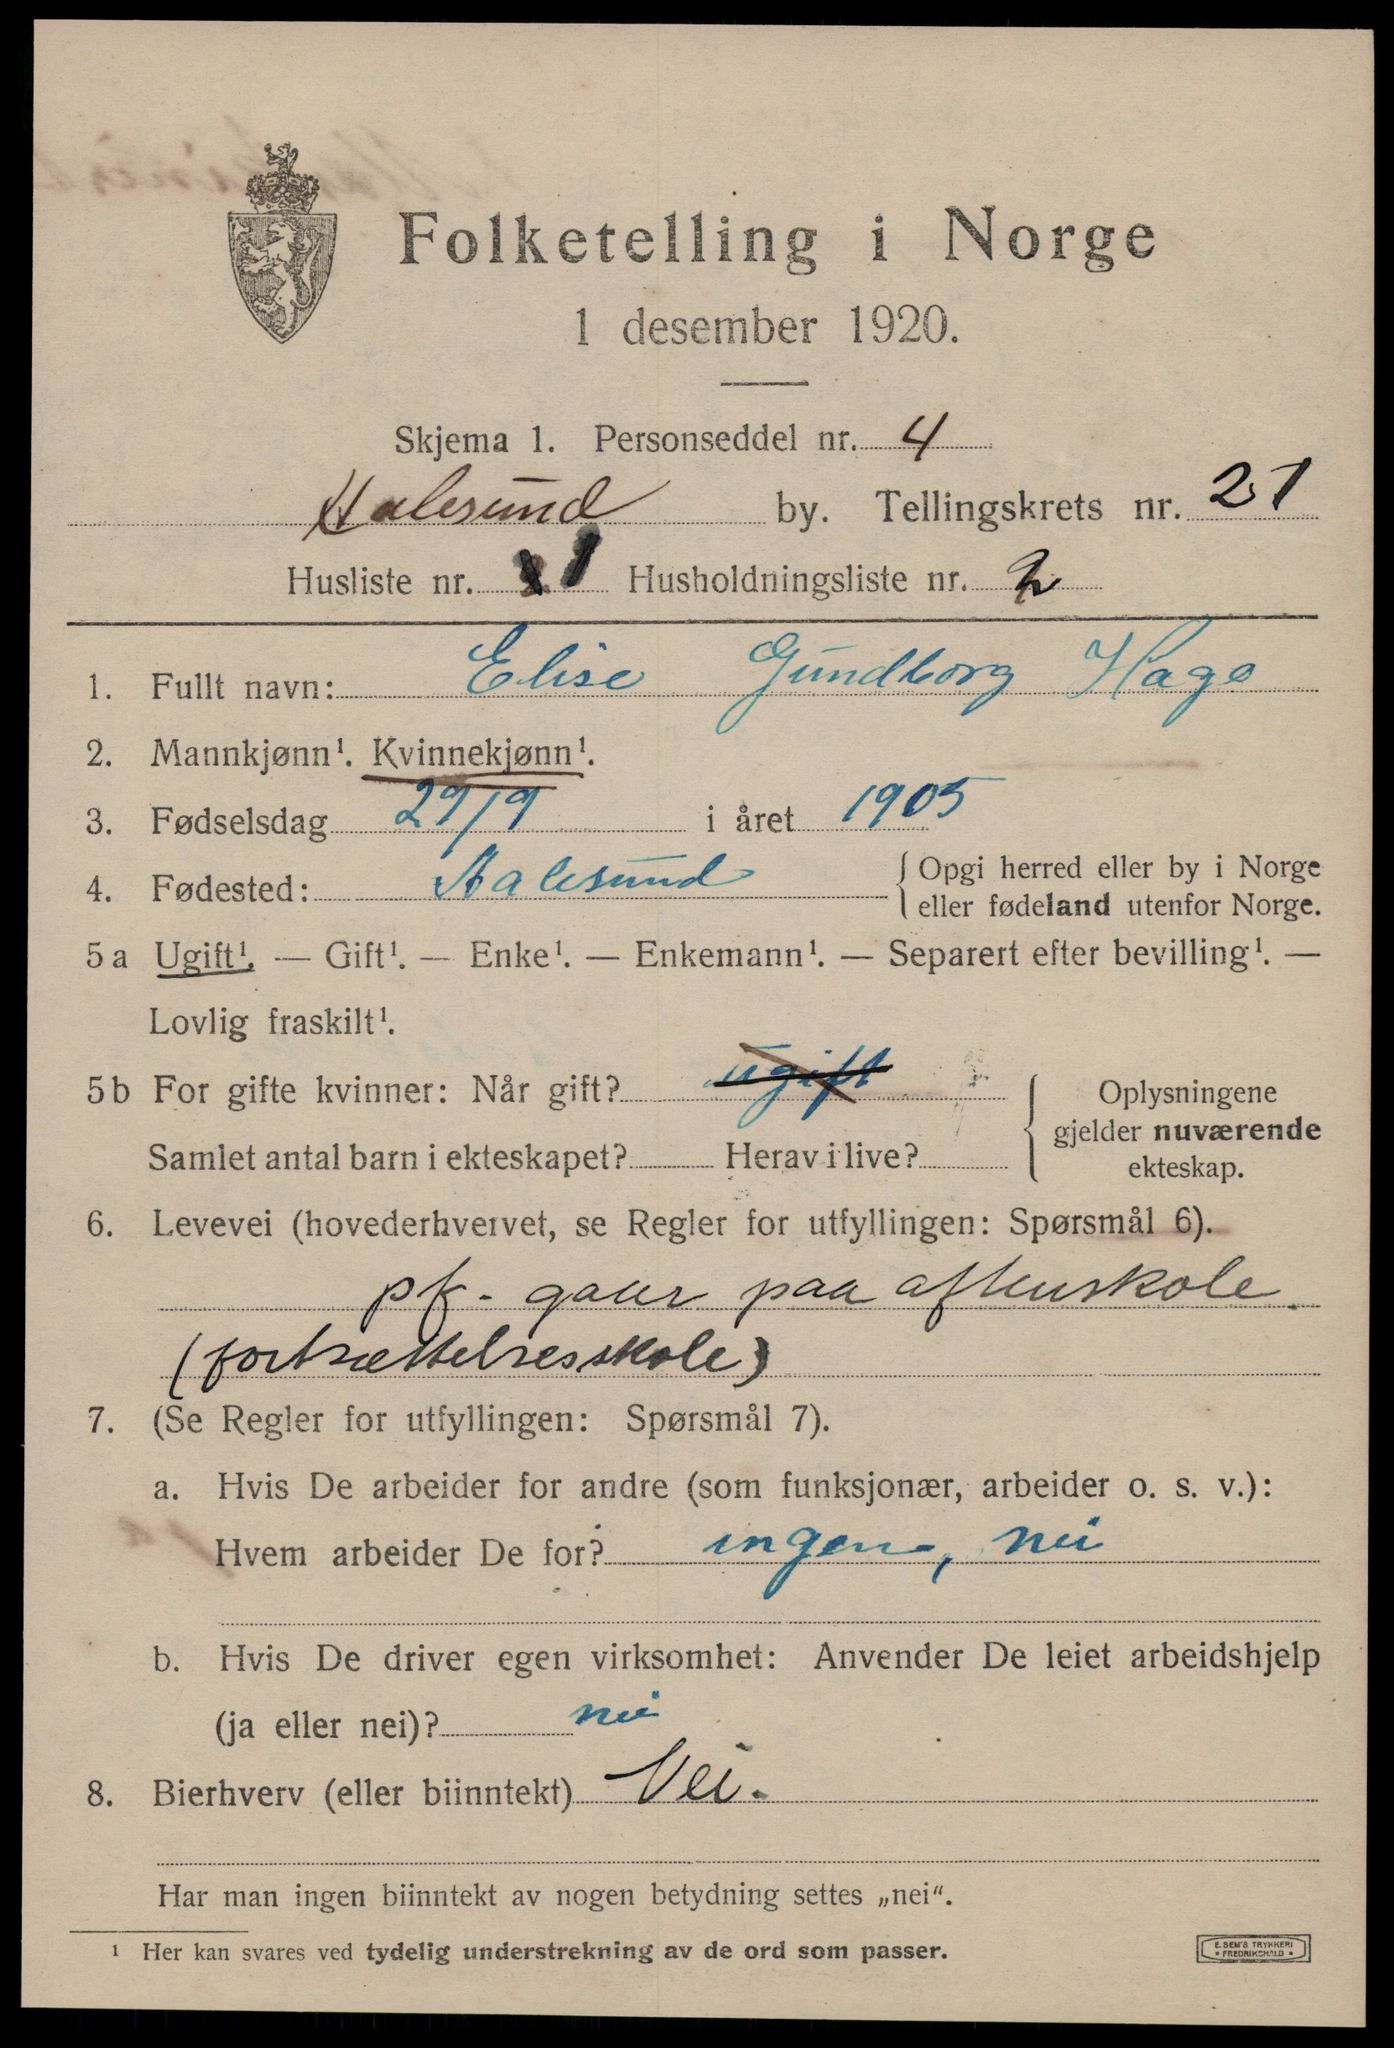 Folketelling i Norge
1 desember 1920.
Skjema 1. Personseddel nr. 4
Aalesund by. Tellingskrets nr. 21
Husliste nr. 1 Husholdningsliste nr. 2
1. Fullt navn: Elise Gundborg Hage
2. Mannkjønn¹. Kvinnekjønn¹.
3. Fødselsdag 29/9 i året 1905
4. Fødested: Aalesund { Opgi herred eller by i Norge
eller fødeland utenfor Norge.
5a Ugift¹. — Gift¹. — Enke¹. — Enkemann¹. — Separert efter bevilling¹. —
Lovlig fraskilt¹.
5b For gifte kvinner: Når gift? ugift
Samlet antal barn i ekteskapet? Herav i live?
Oplysningene
gjelder nuværende
ekteskap.
6. Levevei (hovederhvervet, se Regler for utfyllingen: Spørsmål 6).
pf. gaar paa aftenskole
(fortsættelsesskole)
7. (Se Regler for utfyllingen: Spørsmål 7).
a. Hvis De arbeider for andre (som funksjonær, arbeider o. s. v.):
Hvem arbeider De for? ingen, nei
b. Hvis De driver egen virksomhet: Anvender De leiet arbeidshjelp
(ja eller nei)? nei
8. Bierhverv (eller biinntekt) Nei.
Har man ingen biinntekt av nogen betydning settes „nei“.
¹ Her kan svares ved tydelig understrekning av de ord som passer.
E. SEM'S TRYKKERI
FREDRIKSHALD